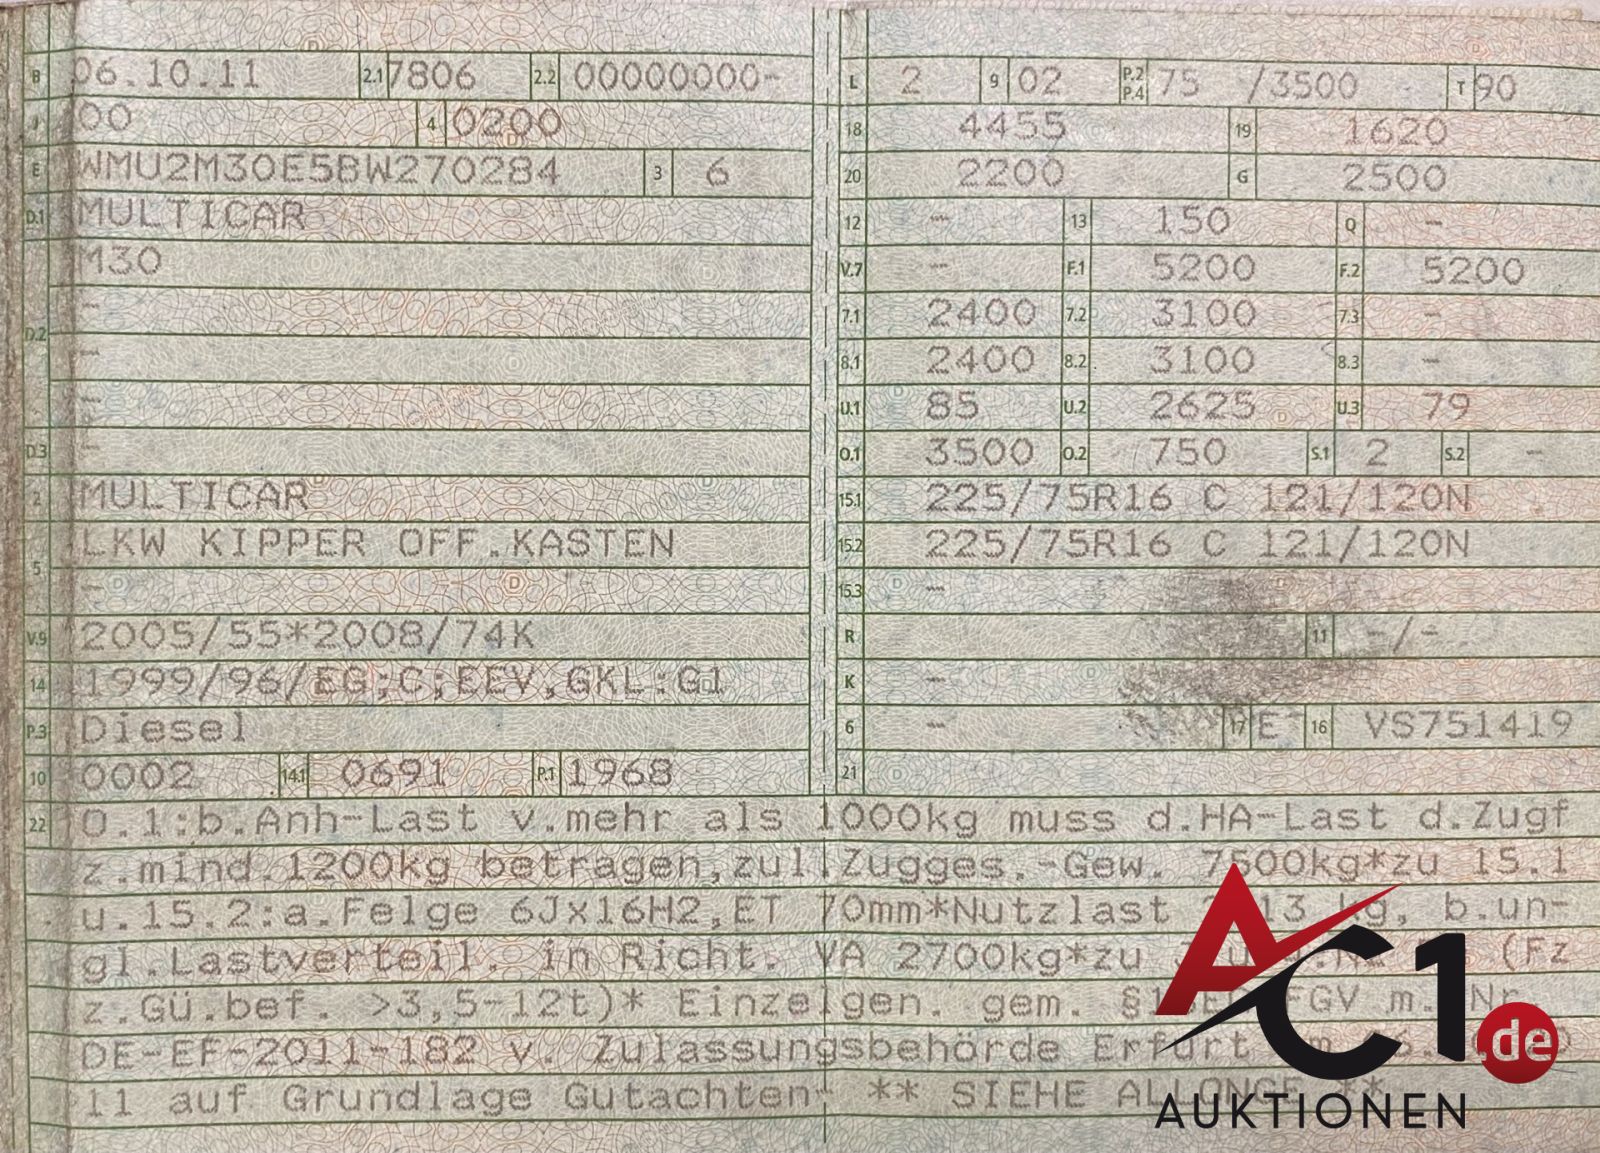 B 06.10.11 2.1 7806 2.2 00000000-
J 00 4 0200
E WMU2M30E5BW270284 3 6
D.1 MULTICAR
M30
-
D.2
-
-
D.3 -
2 MULTICAR
LKW KIPPER OFF.KASTEN
5
-
V.9 2005/55*2008/74K
14 1999/96/EG;C;EEV,GKL:G1
P.3 Diesel
10 0002 14.1 0691 P.1 1968
L 2 9 02 P.2 P.4 75 /3500 T 90
18 4455 19 1620
20 2200 G 2500
12 - 13 150 Q -
V.7 - F.1 5200 F.2 5200
7.1 2400 7.2 3100 7.3 -
8.1 2400 8.2 3100 8.3 -
U.1 85 U.2 2625 U.3 79
O.1 3500 O.2 750 S.1 2 S.2 -
15.1 225/75R16 C 121/120N
15.2 225/75R16 C 121/120N
15.3 -
R 11 -/-
K -
6 - 17 E 16 VS751419
21
22 O.1:b.Anh-Last v.mehr als 1000kg muss d.HA-Last d.Zugf
z.mind.1200kg betragen,zul.Zugges.-Gew. 7500kg*zu 15.1
u.15.2:a.Felge 6Jx16H2,ET 70mm*Nutzlast kg, b.un-
gl.Lastverteil. in Richt. VA 2700kg*zu (Fz
z.Gü.bef. >3,5-12t)* Einzelgen. gem. FGV m. Nr.
DE-EF-2011-182 v. Zulassungsbehörde Erfurt
11 auf Grundlage Gutachten- ** SIEHE ALLONGE **
AC1.de
AUKTIONEN